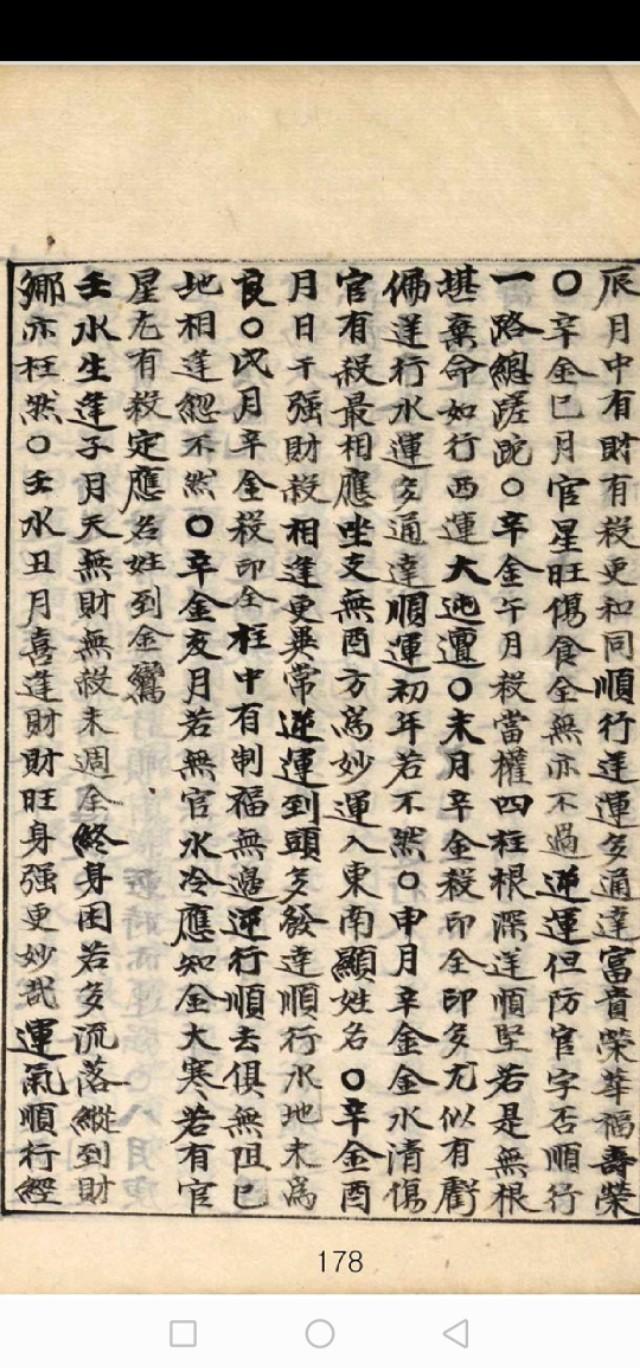 辰月中有財有殺更和同順行逆運多通達富貴榮華福壽榮
○辛金巳月官星旺傷食全無亦不過逆運但防官字否順行
一路總蹉跎○辛金午月殺當權四柱根深逆順堅若是無根
堪棄命如行西運大迍邅○未月辛金殺印全印多尤似有虧
偏逆行水運多通達順運初年若不然○申月辛金金水清傷
官有殺最相應坐支無酉方為妙運入東南顯姓名○辛金酉
月日干强財殺相逢更異常逆運到頭多發達順行水地未為
良○戌月辛金殺印全柱中有制福無邊逆行順去俱無阻巳
地相逢總不然○辛金亥月若無官水冷應知金大寒若有官
星尤有殺定應名姓到金鸞
壬水生逢子月天無財無殺未週全終身困若多流落縱到財
鄉亦枉然○壬水丑月喜逢財財旺身强更妙哉運氣順行經
178